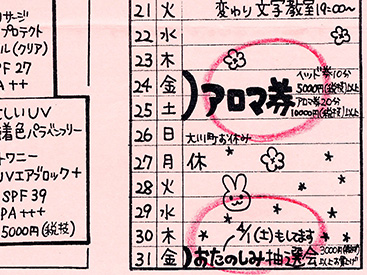 サージ
プロテクト
ル(クリア)
SPF 27
A++
しいUV
着色パラベンフリー
ワニー
UVエアブロック+
SPF 39
PA+++
5000円(税抜)
21 火 変わり文字教室19:00〜
22 水
23 木
24 金
25 土
アロマ券
ヘッド券10分
5000円(税抜)以上
アロマ券20分
10000円(税抜)以上
26 日 大川町お休み
27 月 休
28 火
29 水
30 木 4/1(土)もしてます
31 金 おたのしみ抽選会 3000円(税抜)
以上お買上げ